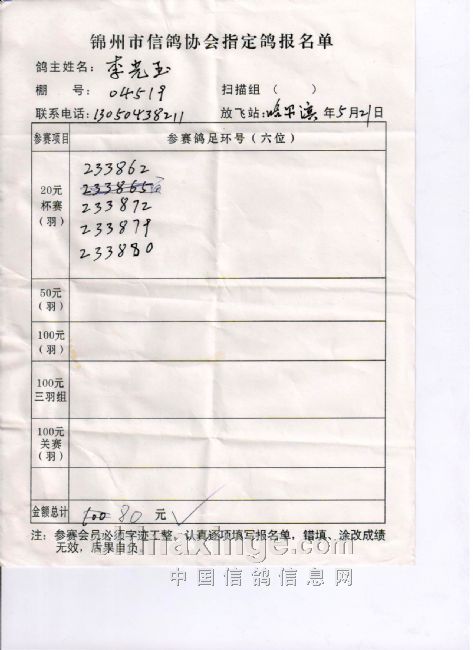 锦州市信鸽协会指定鸽报名单
鸽主姓名：李光玉
棚 号：04519 扫描组（ ）
联系电话：13050438211 放飞站：哈尔滨 年5月21日
参赛项目 参赛鸽足环号（六位）
20元
杯赛
（羽）
233862
233865
233872
233879
233880
50元
（羽）
100元
（羽）
100元
三羽组
100元
关赛
（羽）
金额总计 100 80 元 ✓
注：参赛会员必须字迹工整。认真逐项填写报名单，错填、涂改成绩
无效，后果自负。
chinaxinge.com
中国信鸽信息网